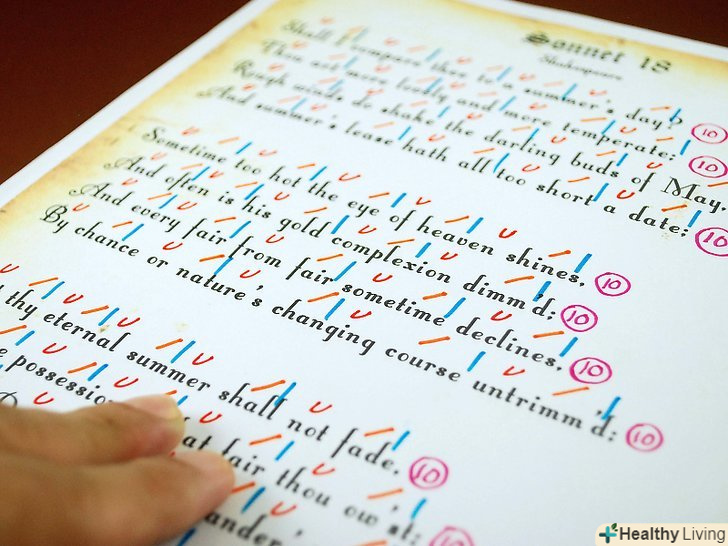 Sonnet 18
Shakespeare
Shall I compare thee to a summer's day? 10
Thou art more lovely and more temperate: 10
Rough winds do shake the darling buds of May,
And summer's lease hath all too short a date: 10
Sometime too hot the eye of heaven shines, 10
And often is his gold complexion dimm'd; 10
And every fair from fair sometime declines, 10
By chance or nature's changing course untrimm'd; 10
thy eternal summer shall not fade, 10
possessio at fair thou ow'st; 10
ander
Healthy Living